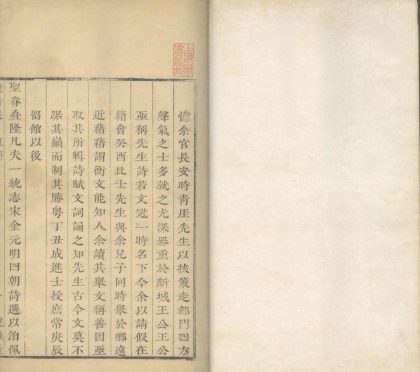 憶余官長安時青厓先生以挾策走都門四方
聲氣之士多就之尤深器重於新城王公王公
亟稱先生詩若文冠一時名下今余以請假在
籍會癸酉比士先生與余兄子同時舉於鄉遠
近藉藉謂衡文能知人余讀其舉文稱善因亟
取其所輯詩賦文詞誦之知先生古今文莫不
躋其巔而制其勝粵丁丑成進士授庶常庚辰
留館以後
聖眷彝隆凡夫一統志宋金元明四朝詩選以洎佩